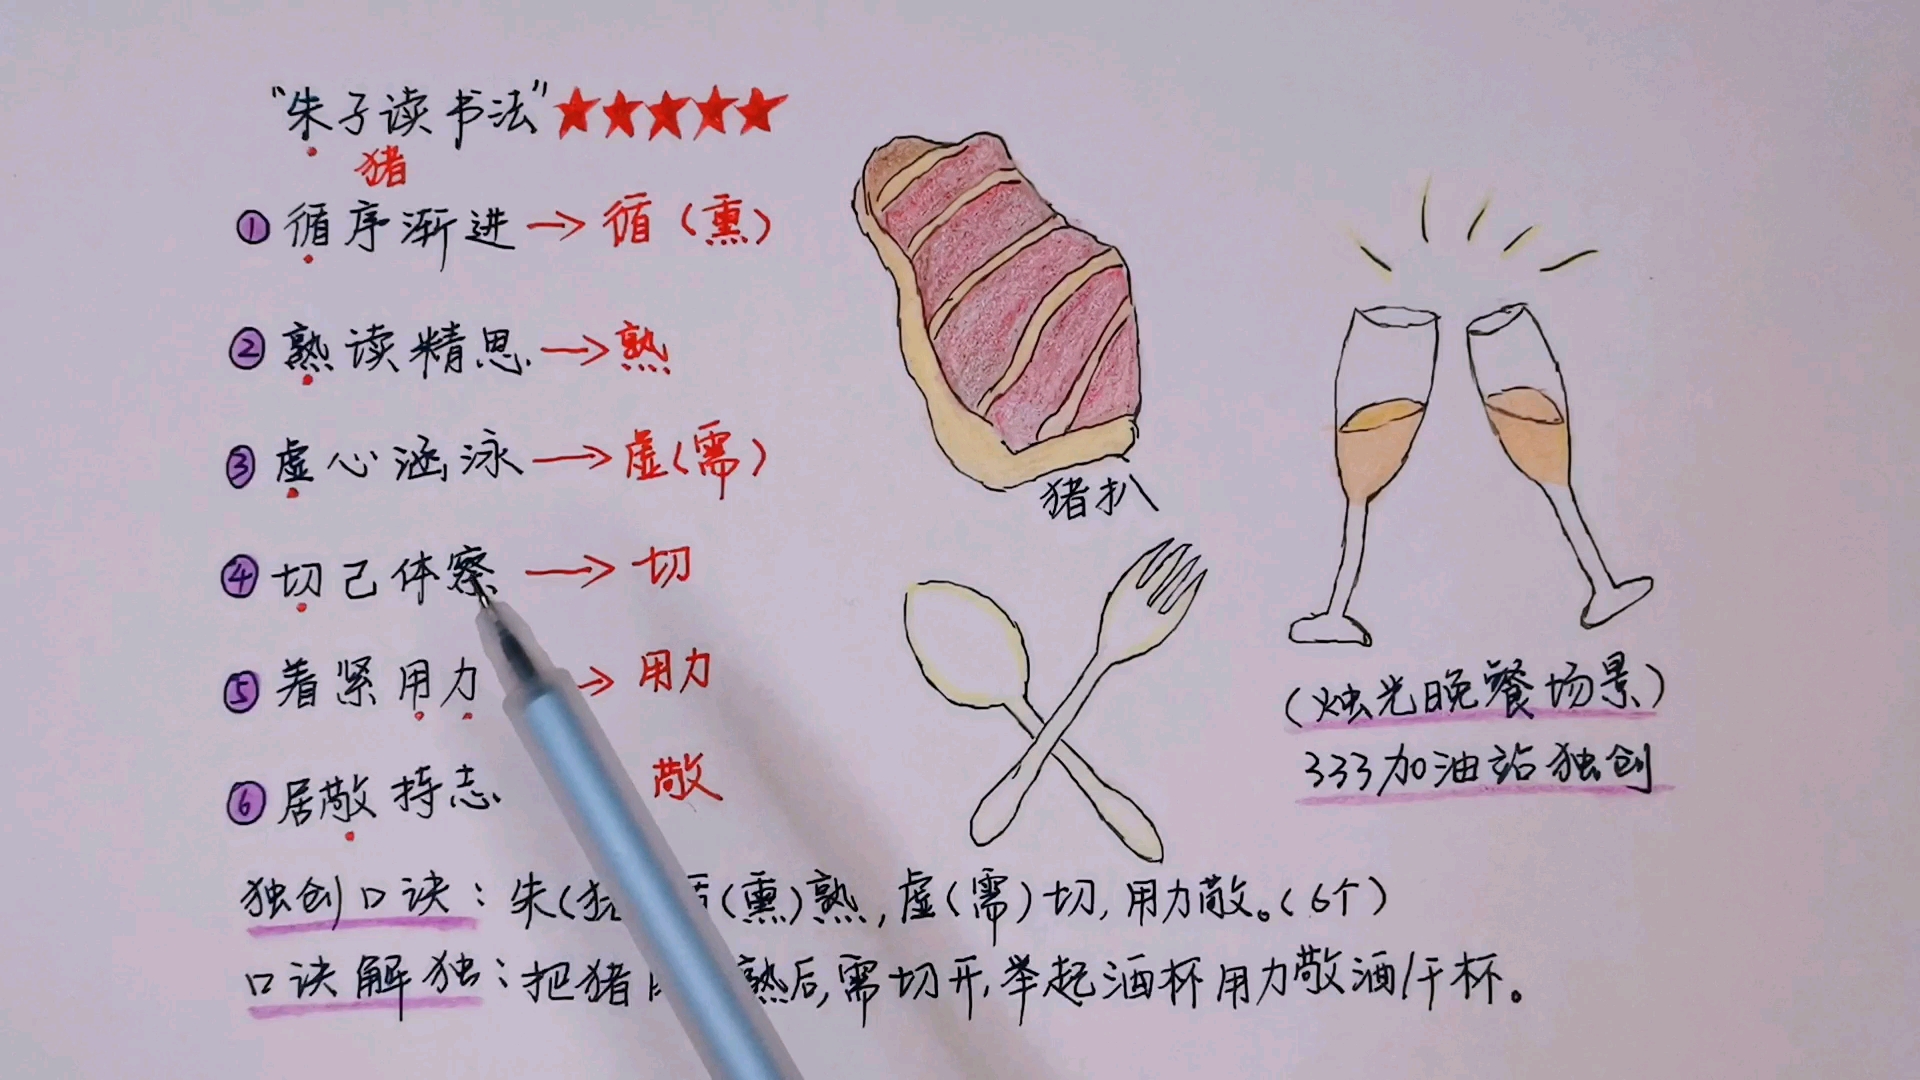 “朱子读书法”★★★★★
猪
① 循序渐进→循(熏)
② 熟读精思→熟
③ 虚心涵泳→虚(需)
④ 切己体察→切
⑤ 着紧用力→用力
⑥ 居敬持志 敬
猪扒
(烛光晚餐场景)
333加油站独创
独创口诀:朱( (熏)熟,虚(需)切,用力敬。(6个)
口诀解独:把猪 熟后,需切开,举起酒杯用力敬酒/干杯。